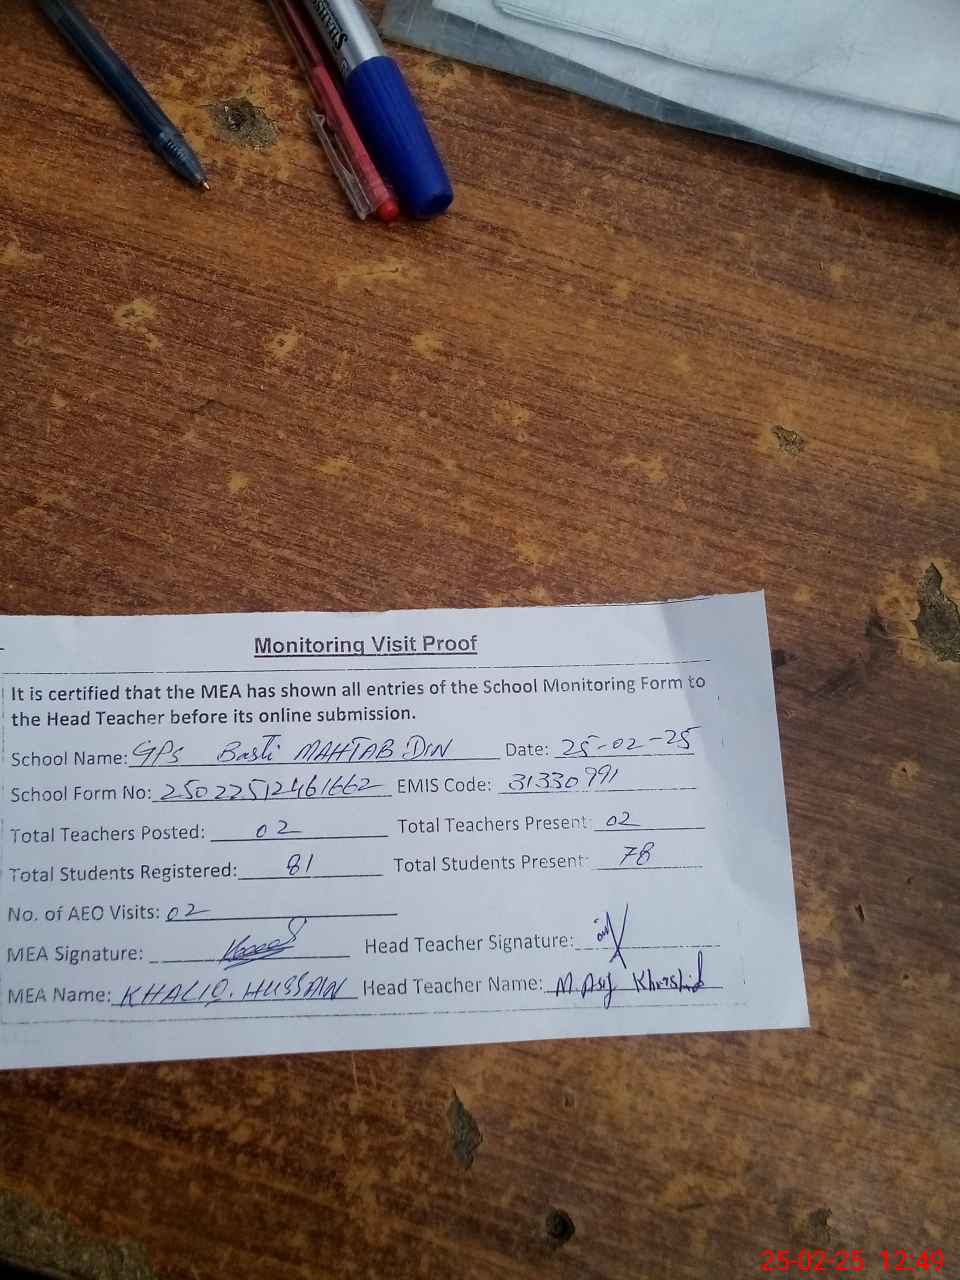 Monitoring Visit Proof
It is certified that the MEA has shown all entries of the School Monitoring Form to
the Head Teacher before its online submission.
School Name: GPS Basti MAHTAB DIN Date: 25-02-25
School Form No: 25022512461662 EMIS Code: 31330991
Total Teachers Posted: 02 Total Teachers Present: 02
Total Students Registered: 81 Total Students Present: 78
No. of AEO Visits: 02
MEA Signature: Head Teacher Signature:
MEA Name: KHALIQ. HUSSAIN Head Teacher Name: M Asif Khurshid
25-02-25 12:49